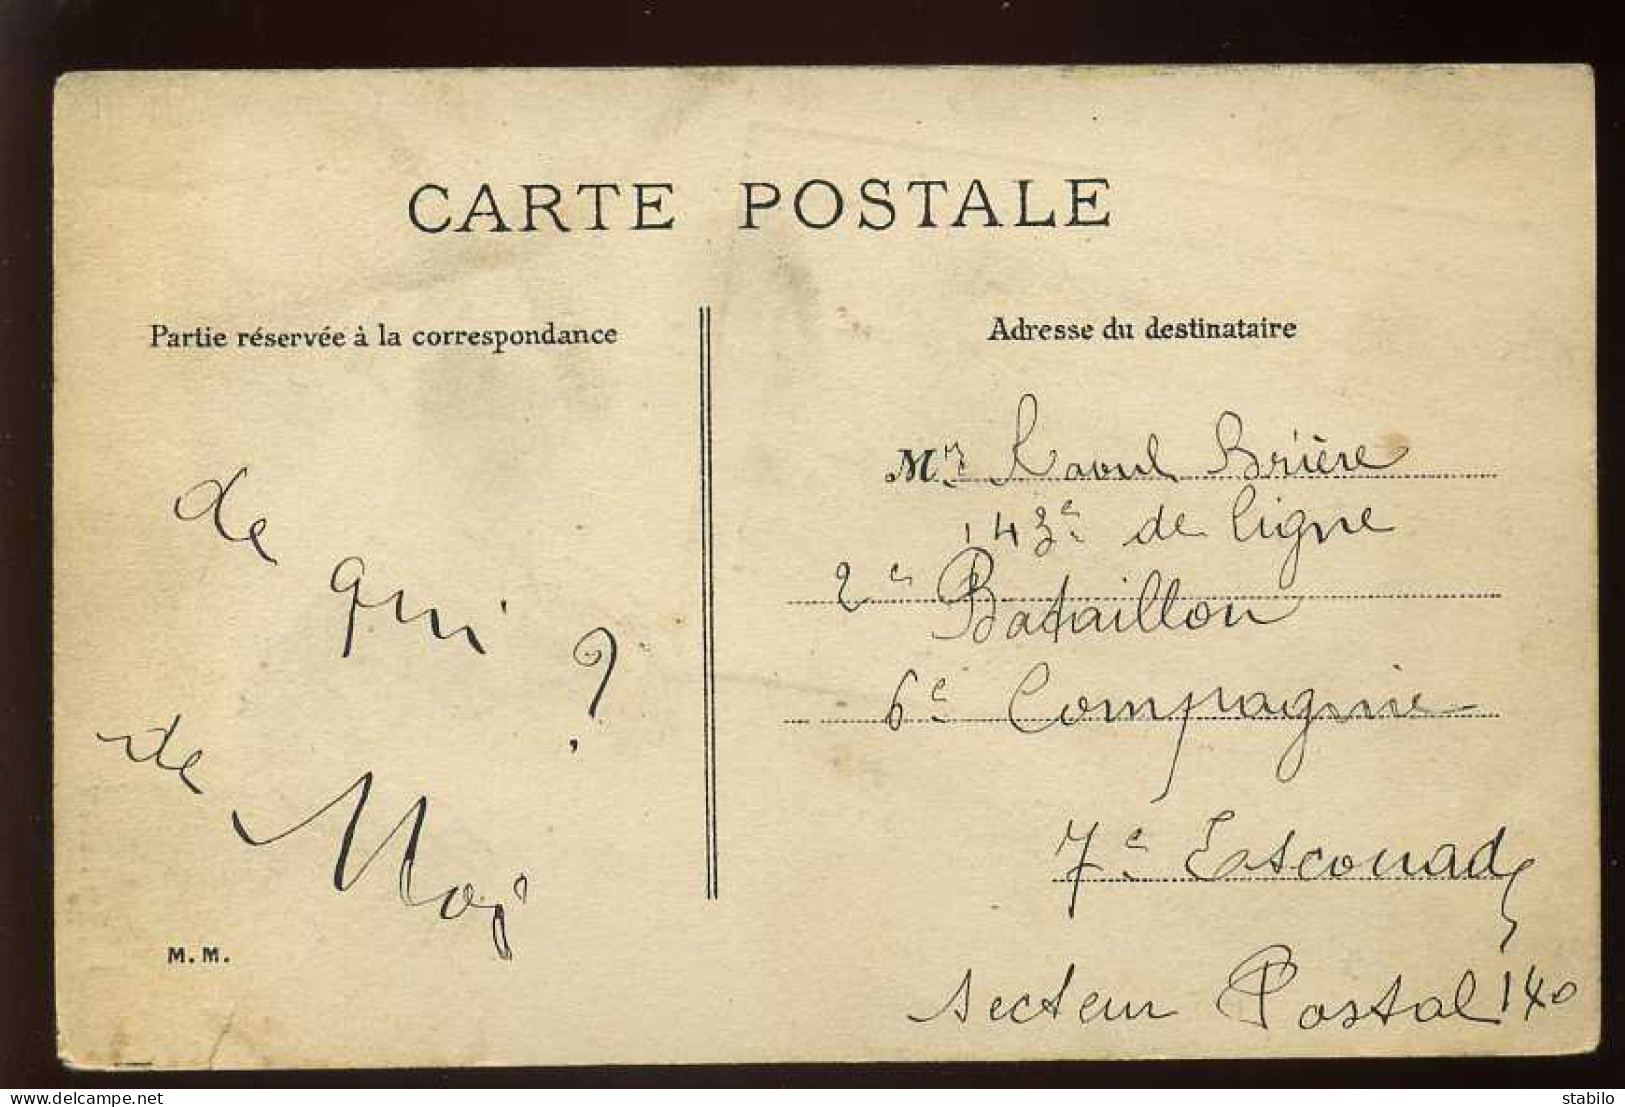 CARTE POSTALE
Partie réservée à la correspondance
de
qui
?
de
Moi
M. M.
Adresse du destinataire
Mr Raoul Brière
143e de ligne
2e Bataillon
6e Compagnie
7e Escouade
secteur Postal 140
delcampe.net
stabilo